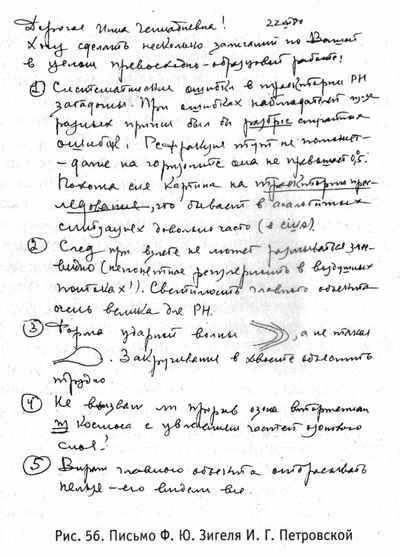 Дорогая Инна Геннадиевна! 22
Хочу сделать несколько замечаний по Вашей
в целом превосходно-образцовой работе:
① Систематические ошибки в траектории РН
загадочны. При ошибках наблюдателей
разных причин был бы разброс
ошибок! Рефракция тут не поможет -
- даже на горизонте она не превышает 0,5.
Похожа сия картина на траекторию прес-
ледования, это бывает в аналогичных
ситуациях довольно часто (в
② След при взлете не может размываться
видно (непонятная регулярность в воздушных
потоках!). Светимость главного объекта
очень велика для РН.
③ Форма ударной волны , а не такая
. Закручивание в хвосте объяснить
трудно
④ Не вызван ли прорыв озона вторжением
из Космоса с увлечением частей озонового
слоя?
⑤ главного объекта отбрасывать
нельзя - его видели все.
Рис. 56. Письмо Ф. Ю. Зигеля И. Г. Петровской